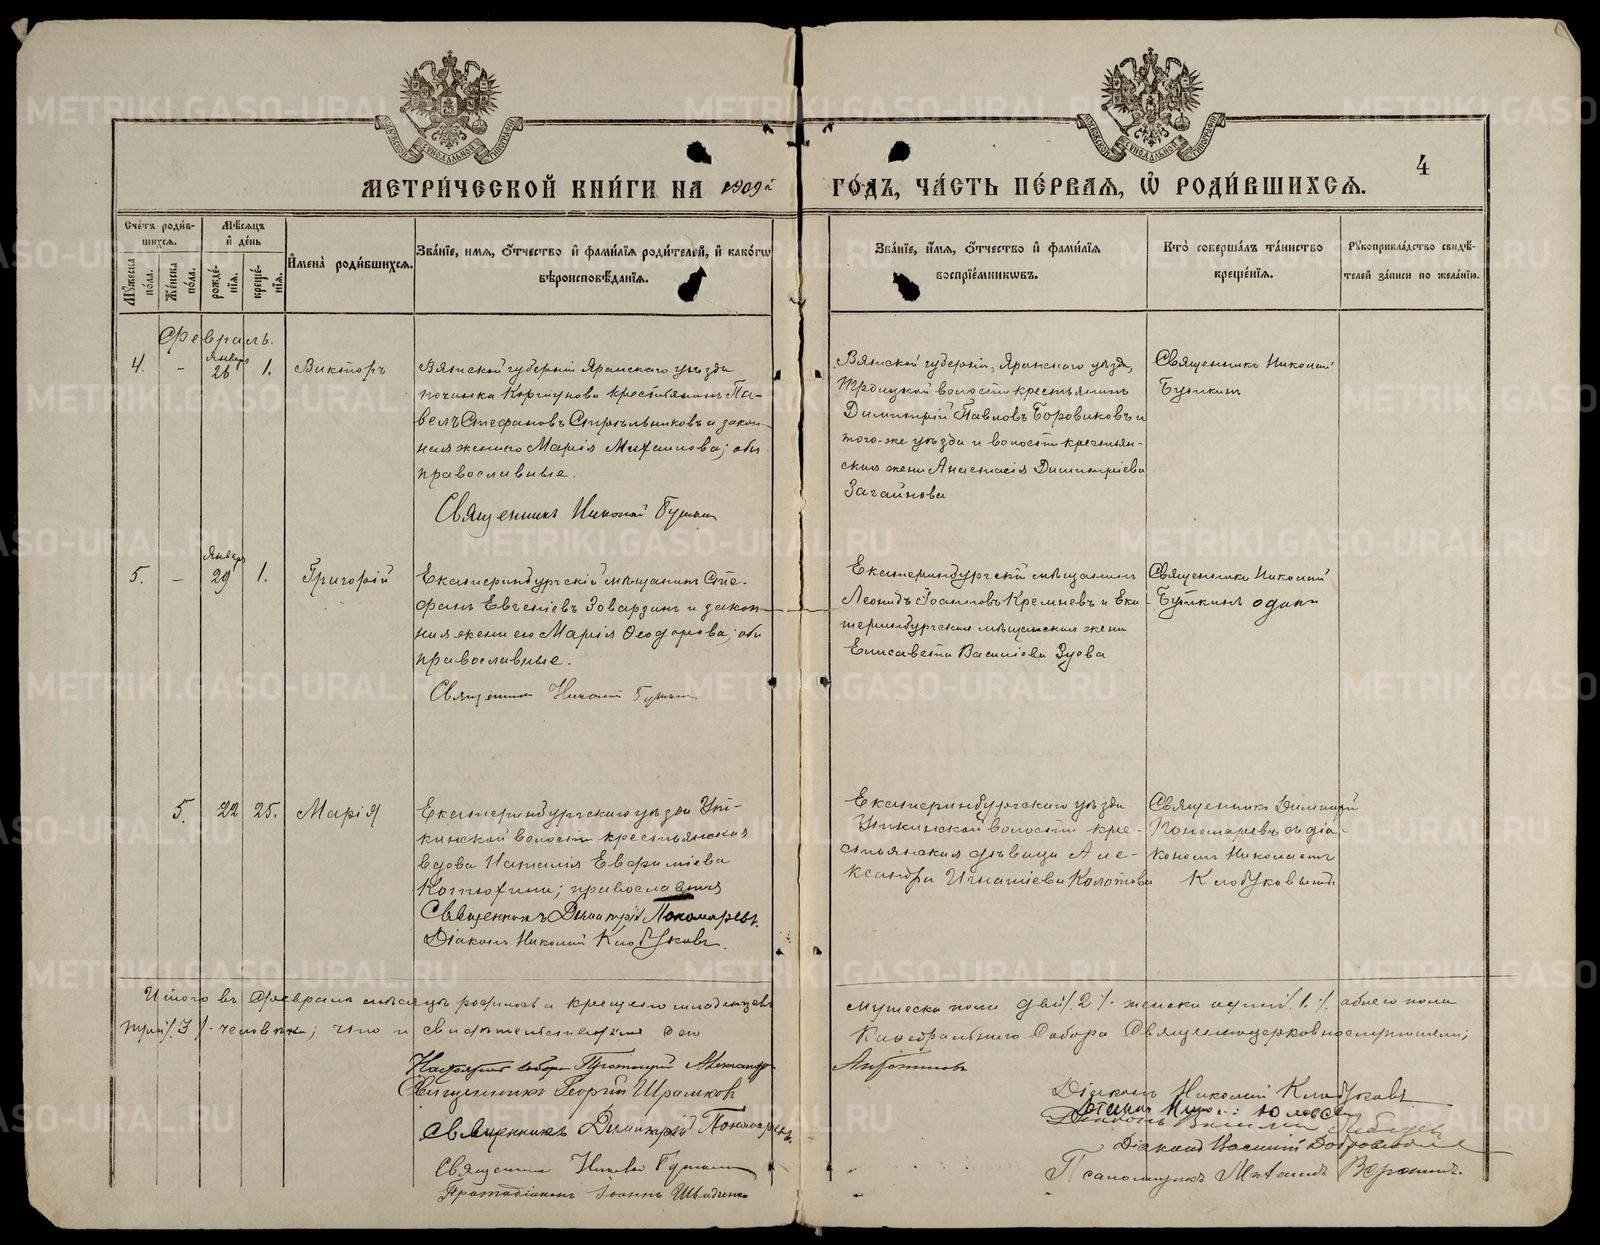 СѴНОДАЛЬНОЙ
СѴНОДАЛЬНОЙ
4
МЕТРИ́ЧЕСКОЙ КНИ́ГИ НА 1909й ГО́ДЪ, ЧА́СТЬ ПЕ́РВАЯ, Ѡ РОДИ́ВШИХСЯ.
Сче́тъ роди́в-
шихся.
Мѣ́сяцъ
и де́нь
Му́жеска по́ла.
Же́нска по́ла.
рожде́-
нїя.
креще́-
нїя.
И҆мена̀ роди́вшихся.
Зва́нїе, имя, ѻ҆́тчество и҆ фами́лїя роди́телей, и҆ како́гѡ
вѣроисповѣ́данїя.
Зва́нїе, и҆́мя, ѻ҆́тчество и҆ фами́лїя
воспрїе́мниковъ.
Кто̀ соверша́лъ та́инство
креще́нїя.
Рꙋкоприкла́дство свидѣ́-
телей за́писи по жела́нїю.
Февраль.
4. - Января 26 1. Викторъ
Вятской губернiи Яранскаго уѣзда
починка Коргунова крестьянинъ Па-
велъ Стефановъ Стрѣльниковъ и закон-
ная жена его Марiя Михаилова; оба
православные.
Священникъ Николай Буткинъ
Вятской губернiи, Яранскаго уѣзда,
Троицкой волости крестьянинъ
Димитрiй Павловъ Боровиковъ и
того-же уѣзда и волости крестьян-
ская жена Анастасiя Димитрiева
Загайнова
Священникъ Николай
Буткинъ
5. - Января 29 1. Григорiй
Екатеринбургскiй мѣщанинъ Сте-
фанъ Евгенiевъ Зовардинъ и закон-
ная жена его Марiя Ѳеодорова; оба
православные.
Священникъ Николай Буткинъ
Екатеринбургскiй мѣщанинъ
Леонидъ Iоанновъ Кремневъ и Ека-
теринбургская мѣщанская жена
Елисавета Василiева Зуева
Священникъ Николай
Буткинъ одинъ
5. 22 25. Марiя
Екатеринбургскаго уѣзда Ут-
кинской волости крестьянская
вдова Наталiя Евфимiева
Костюхина; православная
Священникъ Димитрiй Пономаревъ.
Дiаконъ Николай Клобуковъ.
Екатеринбургскаго уѣзда
Уткинской волости кре-
стьянская дѣвица Але-
ксандра Игнатiева Колотова
Священникъ Димитрiй
Пономаревъ съ дiа-
кономъ Николаемъ
Клобуковымъ
Итого въ Февралѣ мѣсяцѣ родилось и крещено младенцевъ мужеска пола два /. 2 /. женска одинъ /. 1 /. обоего пола
три /. 3 /. человѣка; что и свидѣтельствуемъ Каѳедральнаго Собора Священноцерковнослужители;
Настоятель собора Протоiерей Александръ
Священникъ Георгiй Шрамковъ
Священникъ Димитрiй Пономаревъ
Священникъ Николай Буткинъ
Протодiаконъ Iоаннъ
Дiаконъ Николай Клобуковъ
Дiаконъ
Дiаконъ Василiй
Псаломщикъ
METRIKI.GASO-URAL.RU